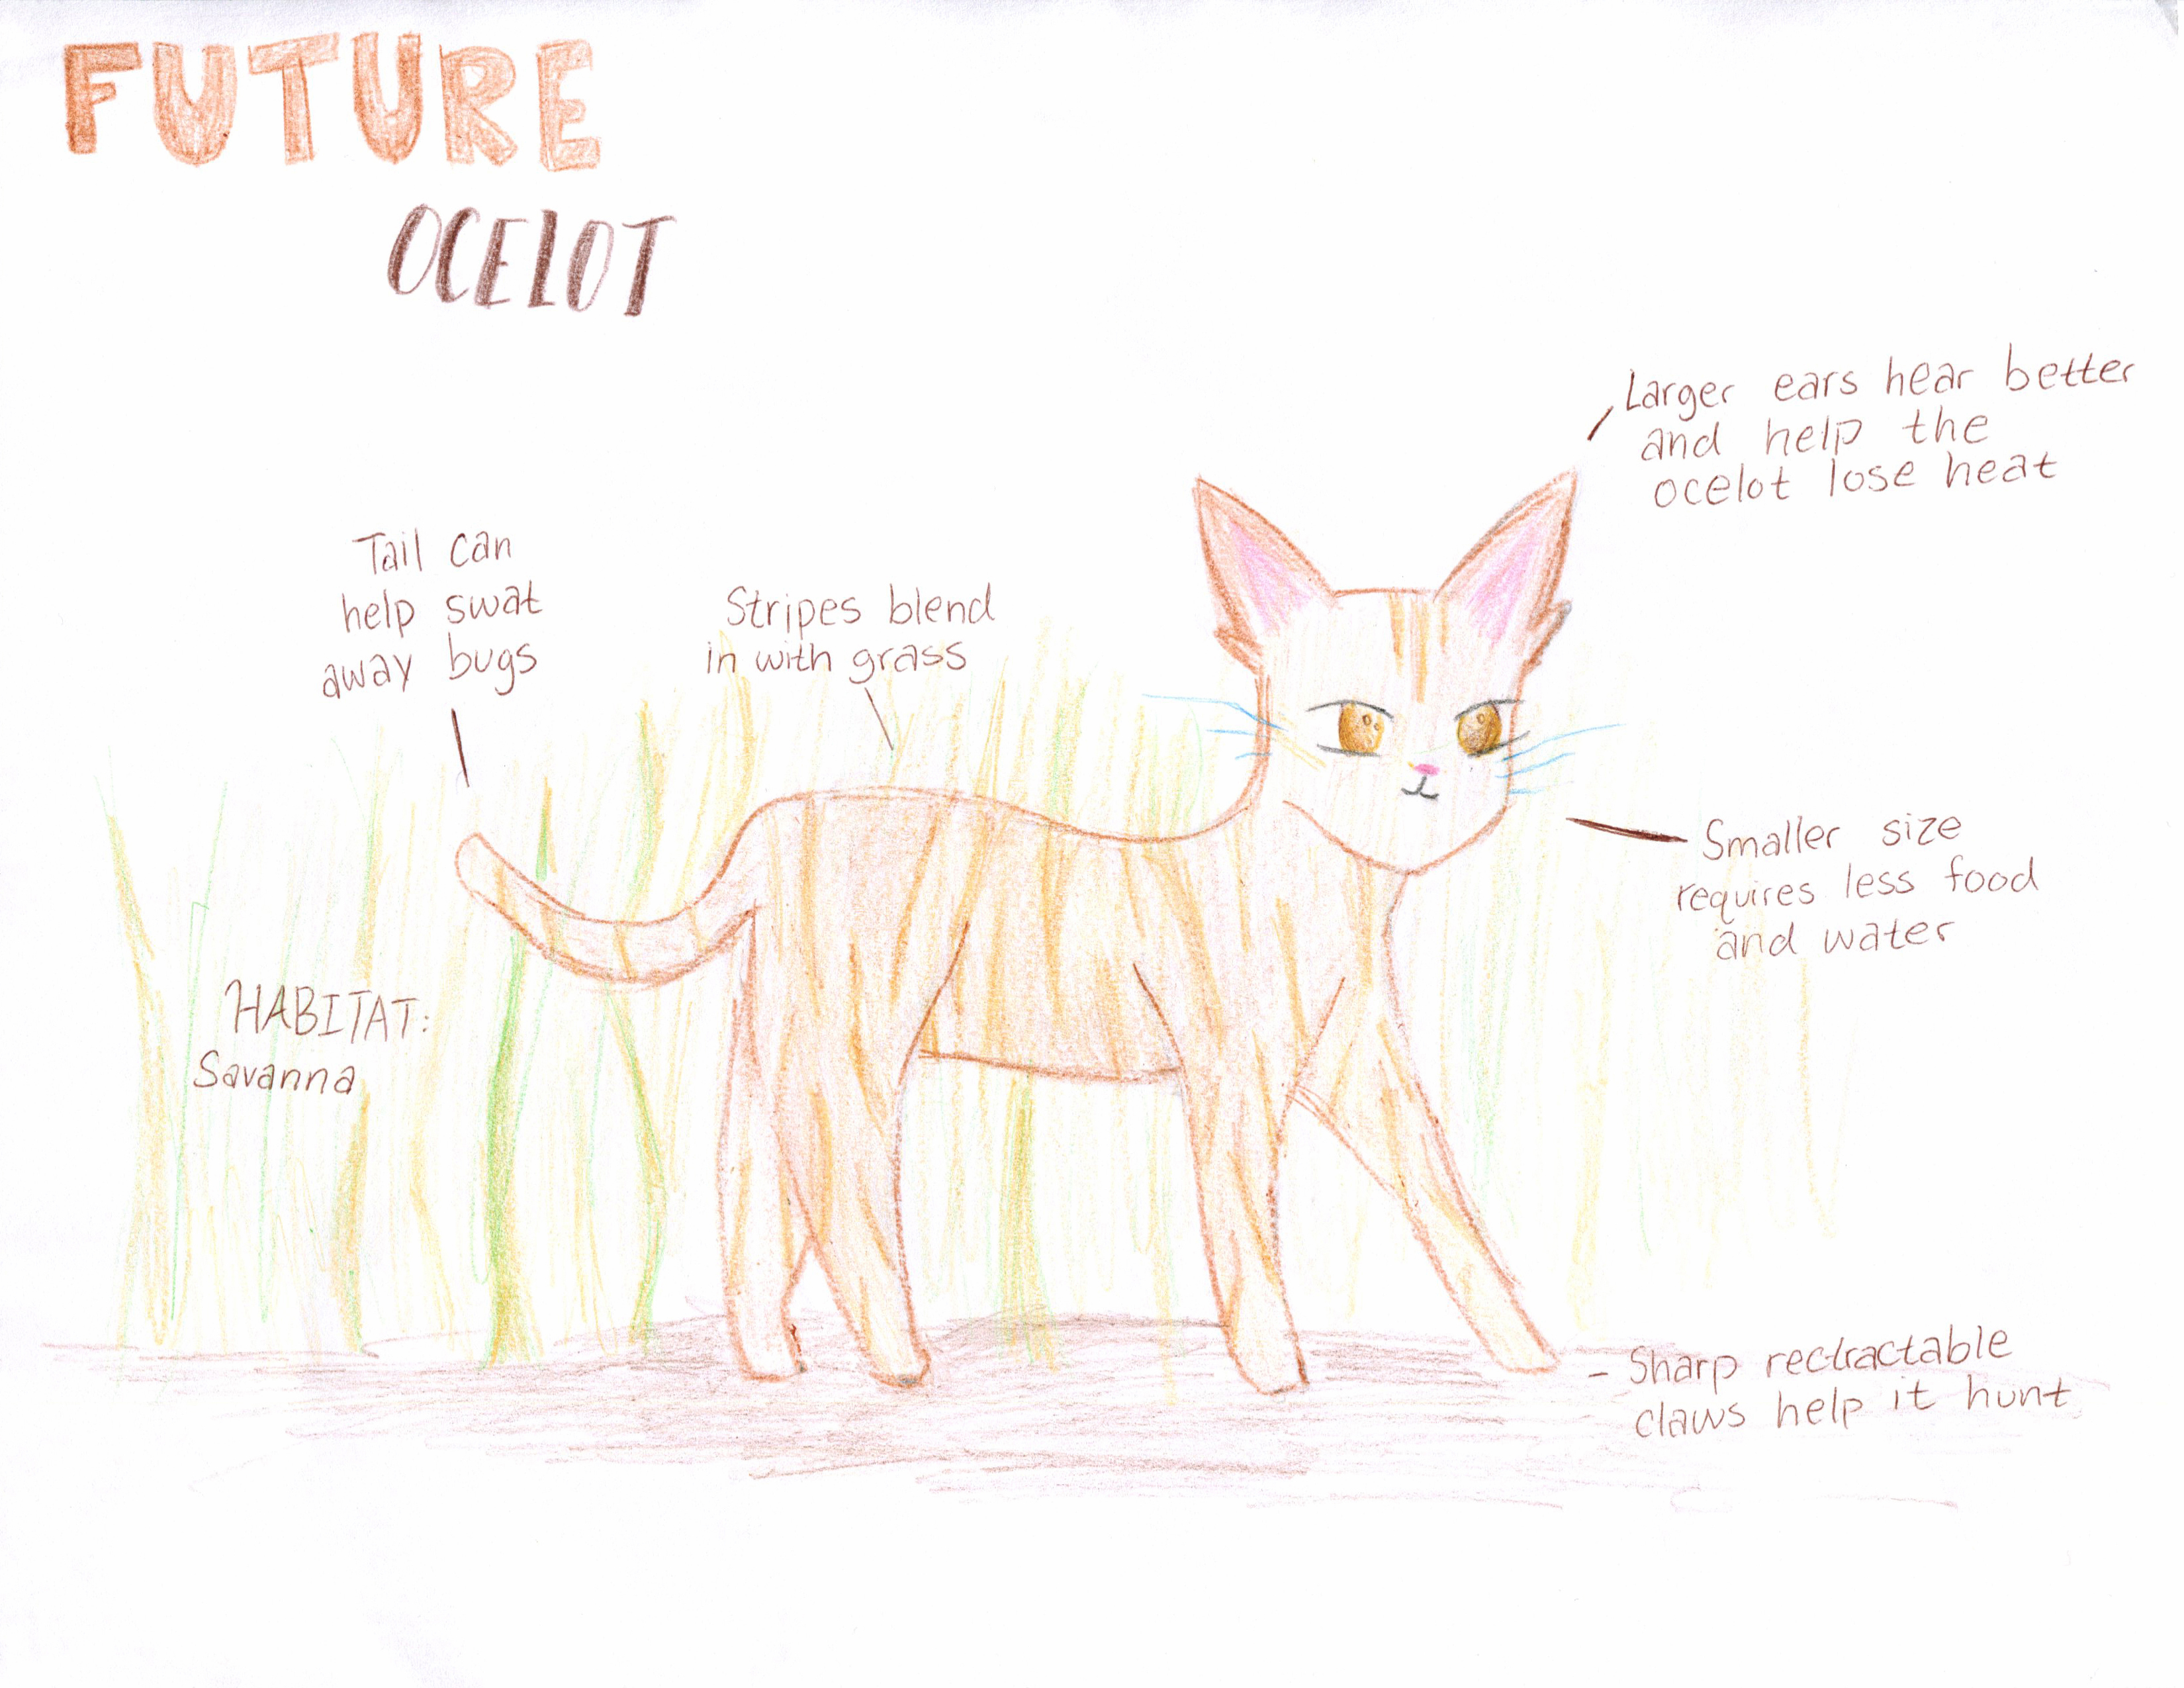 FUTURE
OCELOT
Larger ears hear better
and help the
ocelot lose heat
Tail can
help swat
away bugs
Stripes blend
in with grass
Smaller size
requires less food
and water
HABITAT:
Savanna
- Sharp rectractable
claws help it hunt